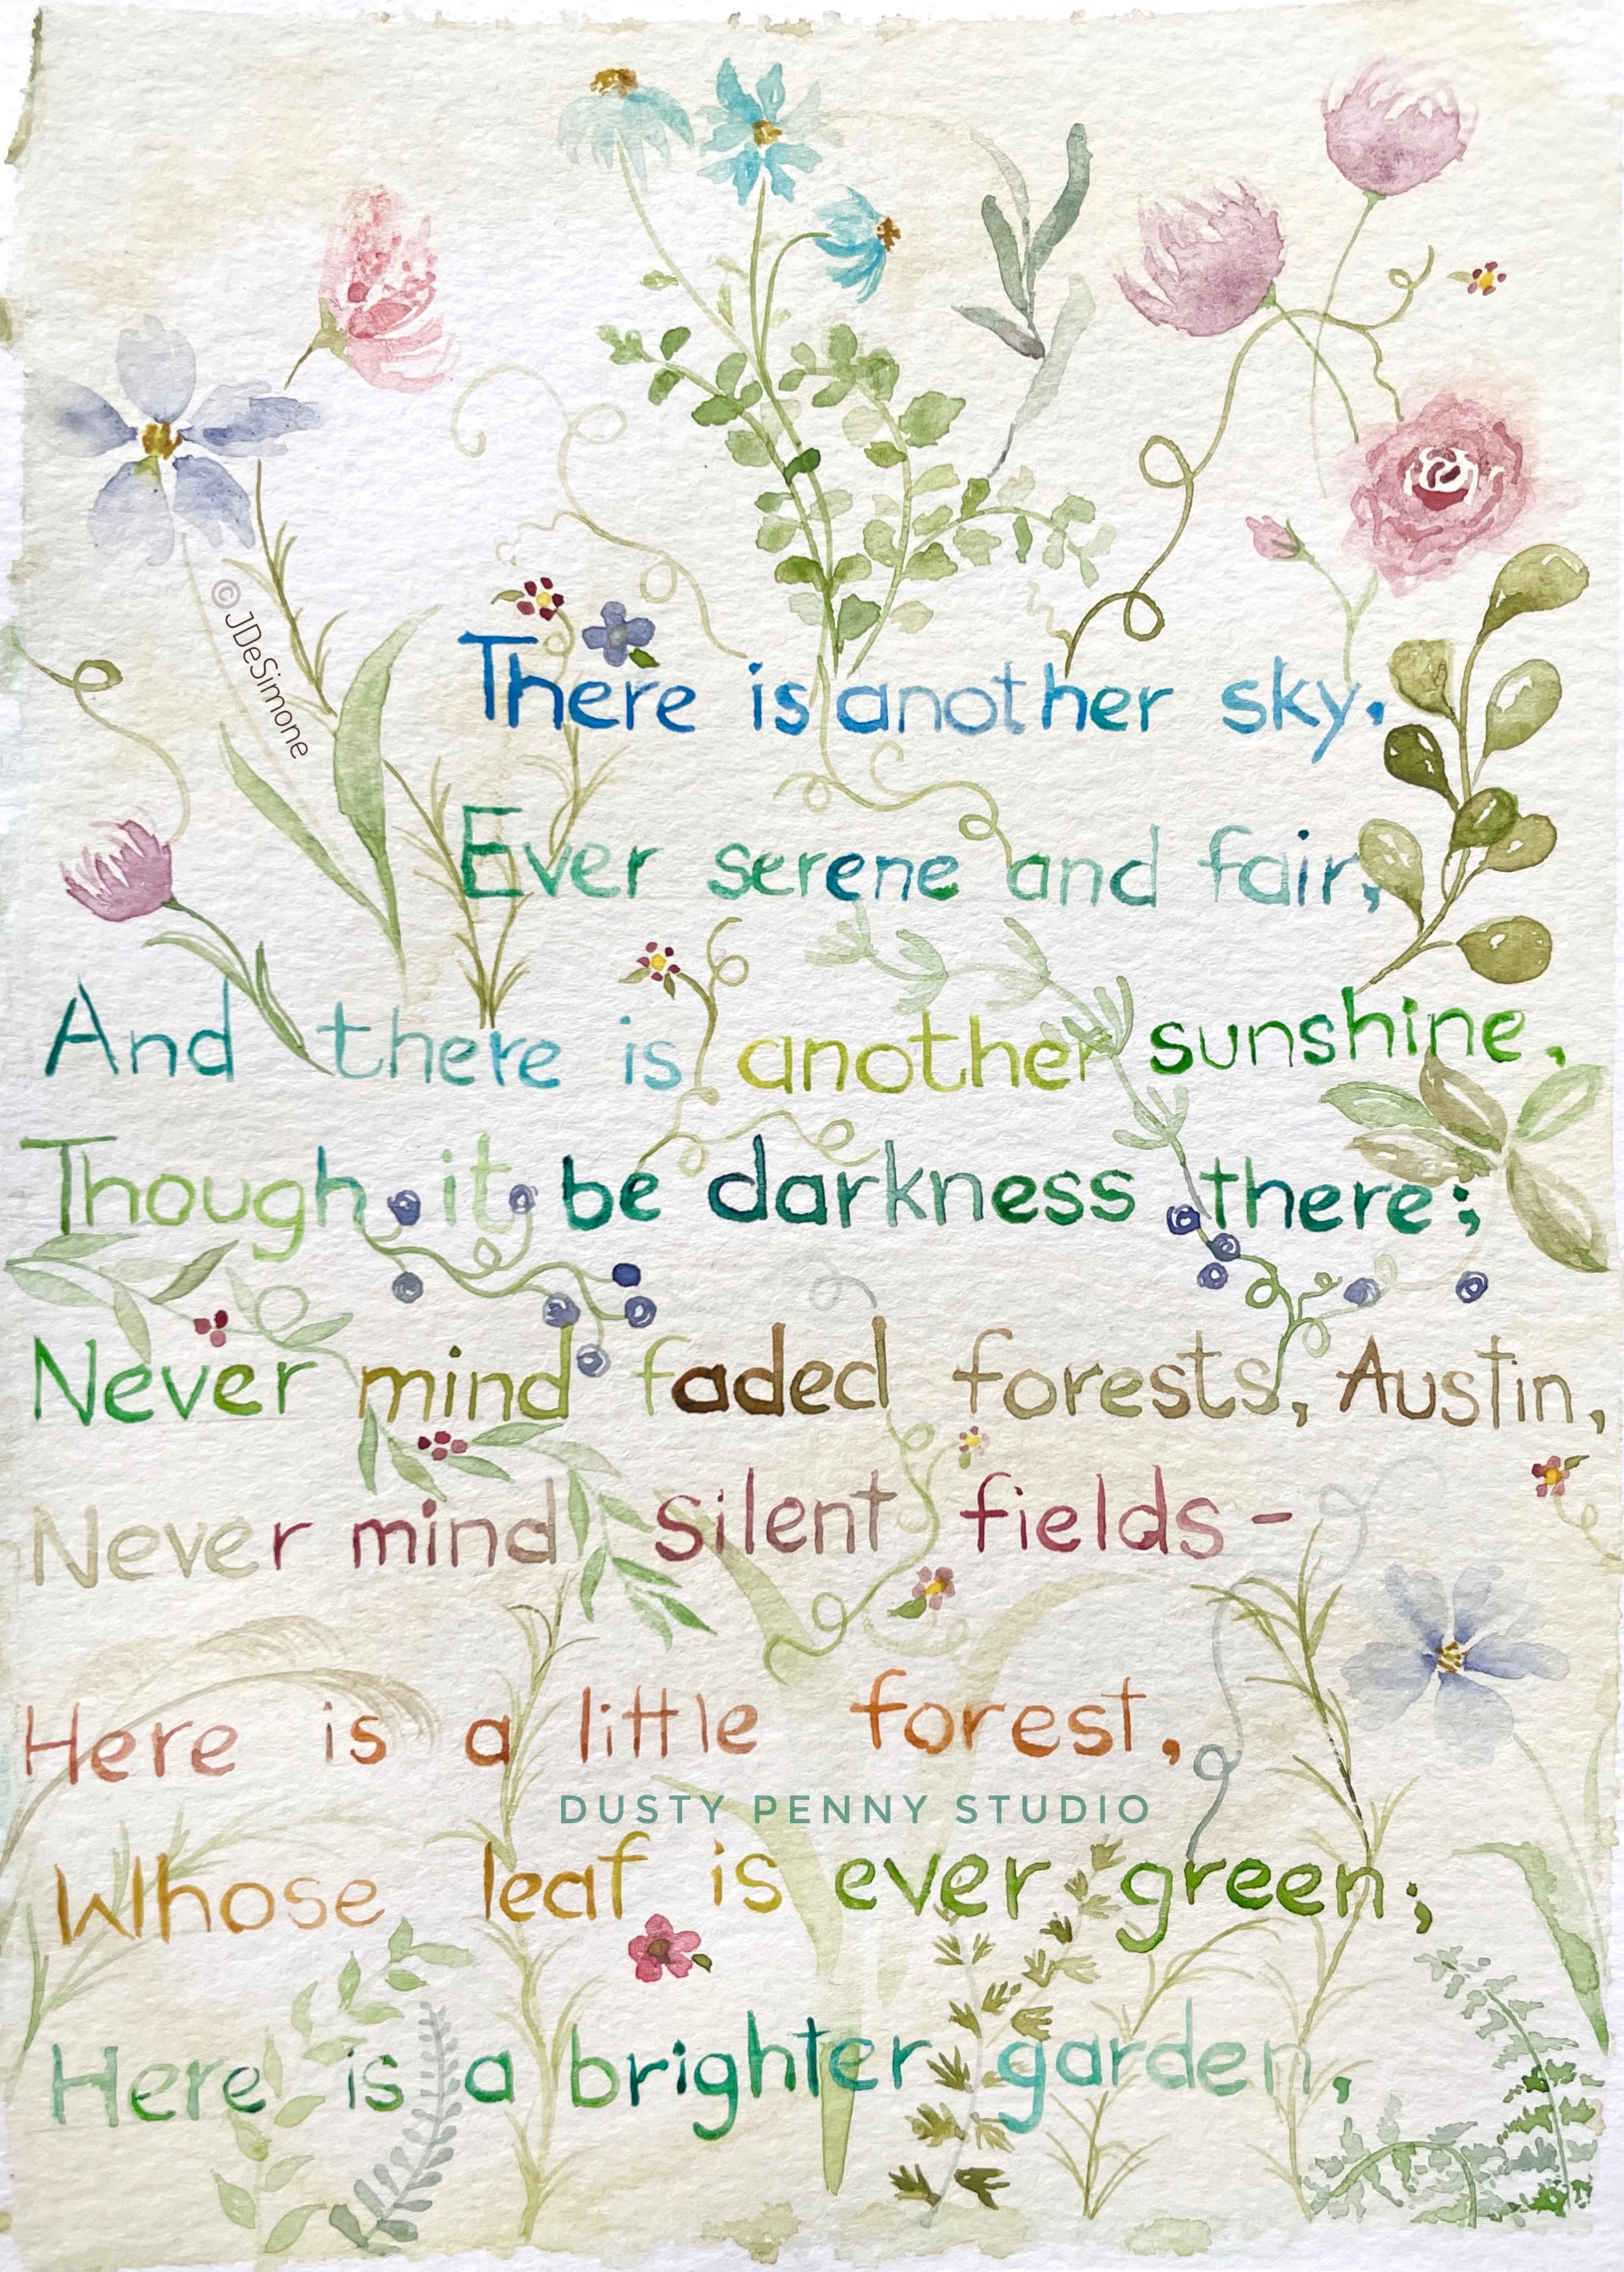 © JDeSimone
There is another sky.
Ever serene and fair,
And there is another sunshine,
Though it be darkness there;
Never mind faded forests, Austin,
Never mind silent fields-
Here is a little forest,
DUSTY PENNY STUDIO
Whose leaf is ever green;
Here is a brighter garden,